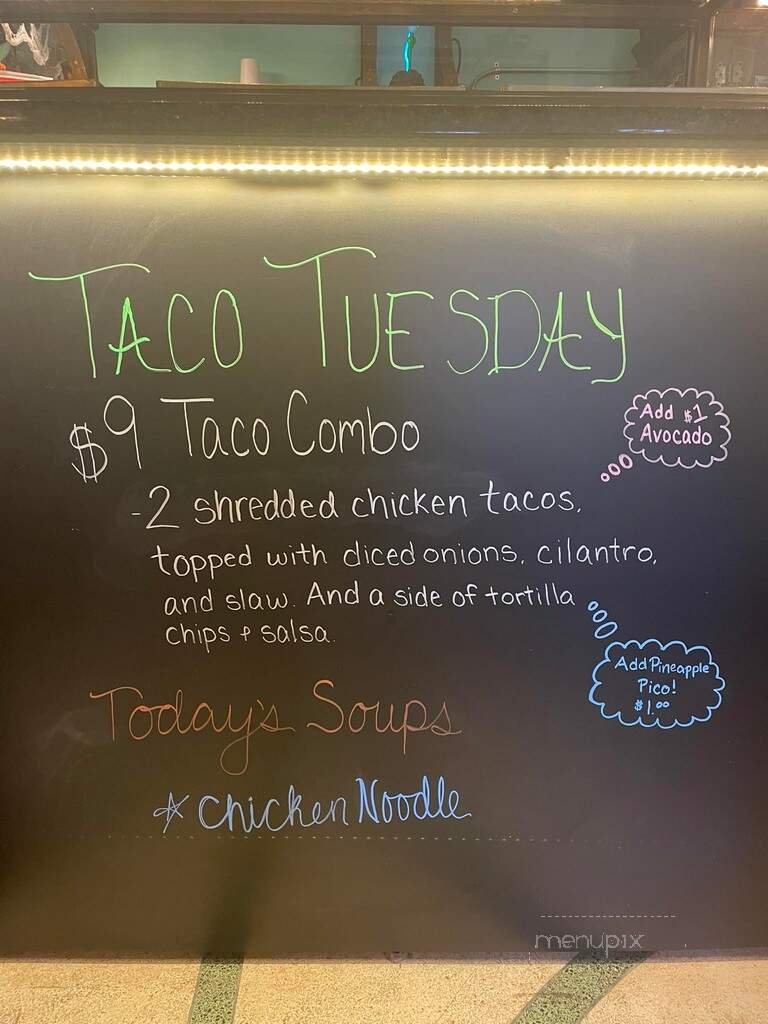 TACO TUESDAY
$9 Taco Combo
Add $1
Avocado
-2 shredded chicken tacos,
topped with diced onions, cilantro,
and slaw. And a side of tortilla
chips + salsa.
Add Pineapple
Pico!
$1.00
Today's Soups
☆ Chicken Noodle
menupix